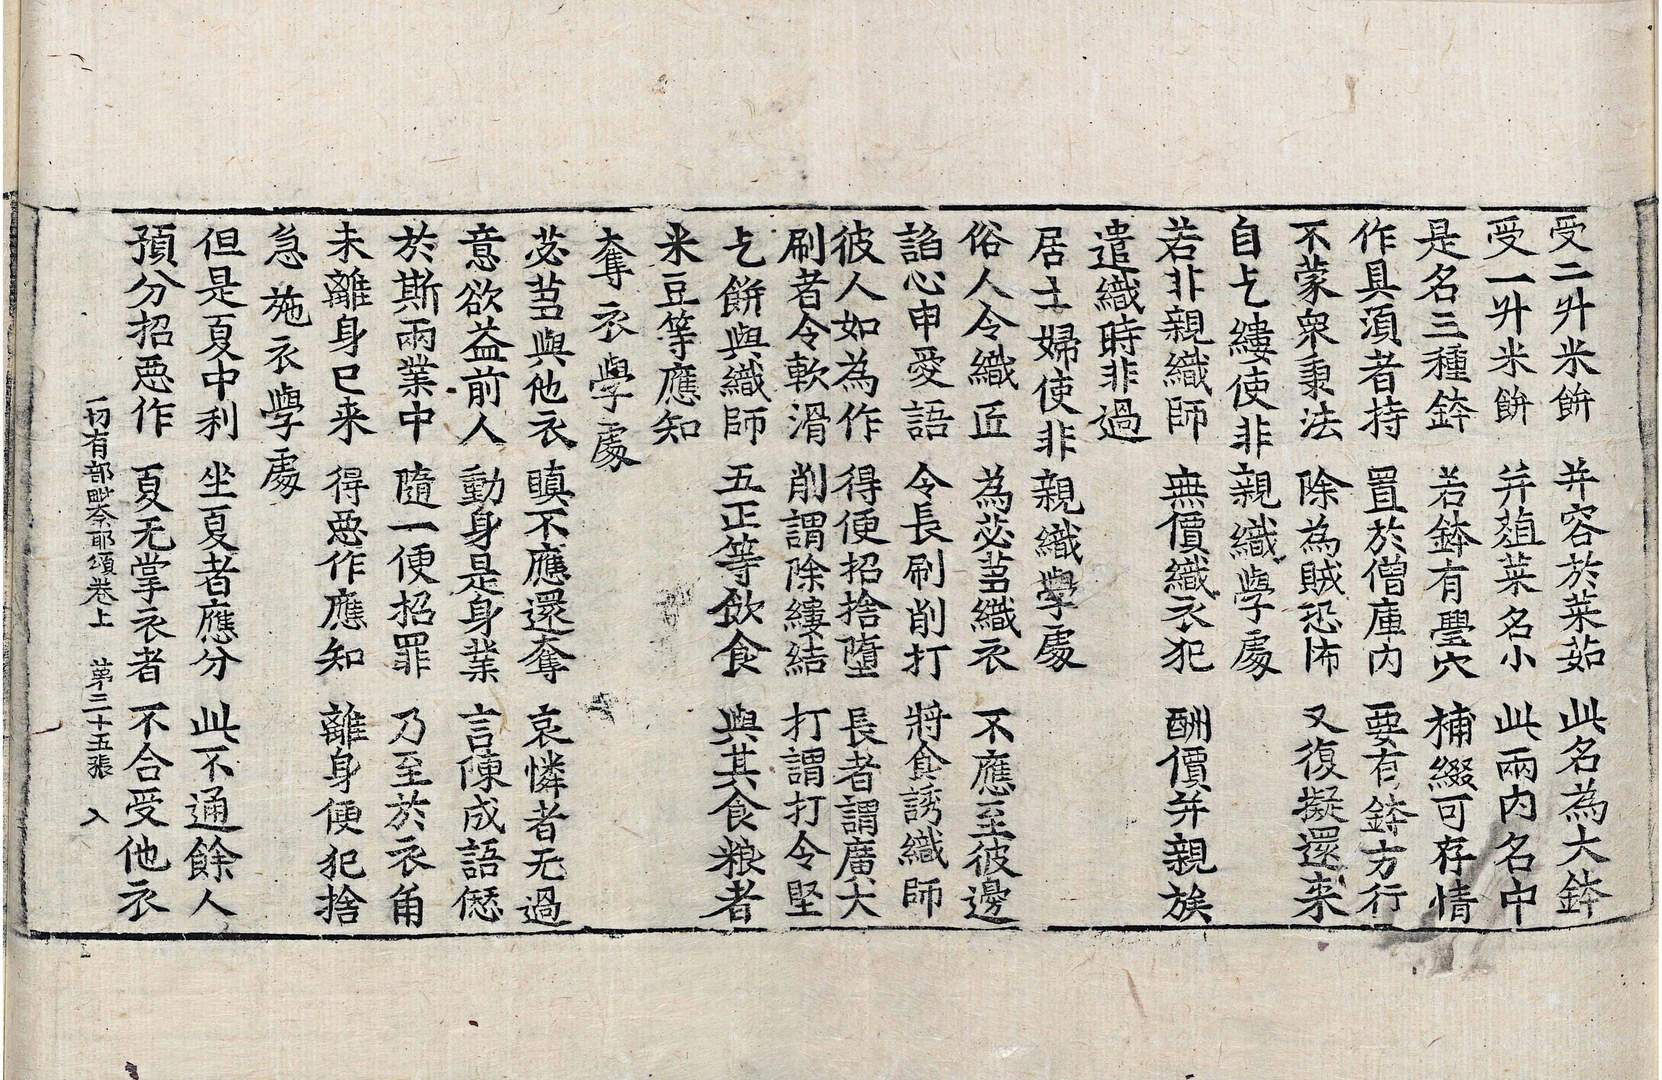 受二升米餅　并容於菜茹　此名為大鉢
受一升米餅　并䕩菜名小　此兩內名中
是名三種鉢　若鉢有舋穴　補綴可存情
作具湏者持　置於僧庫內　要有鉢方行
不蒙衆秉法　除為賊恐怖　又復擬還来
自乞縷使非親織學處
若非親織師　無價織衣犯　酬價并親族
遣織時非過
居士婦使非親織學處
俗人令織匠　為苾芻織衣　不應至彼邊
諂心申愛語　令長刷削打　將食誘織師
彼人如為作　得便招捨墮　長者謂廣大
刷者令軟滑　削謂除縷結　打謂打令堅
乞餅與織師　五正等飲食　與其食粮者
米豆等應知
奪衣學處
苾芻與他衣　瞋不應還奪　哀憐者无過
意欲益前人　動身是身業　言陳成語愆
於斯兩業中　隨一便招罪　乃至於衣角
未離身已来　得惡作應知　離身便犯捨
急施衣學處
但是夏中利　坐夏者應分　此不通餘人
預分招惡作　夏无掌衣者　不合受他衣
一切有部毗奈耶頌卷上　第三十五張　入